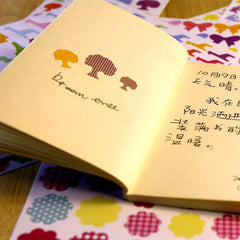 brown tree
10月9日
天气晴。
我在
阳光洒进
装满书的
温暖。